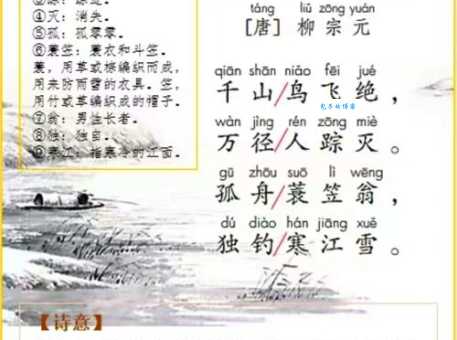 ④灭：消失。
⑤孤：孤零零。
⑥蓑笠：蓑衣和斗笠。
蓑，用草或棕编织而成，
用来防雨雪的衣具。笠，
用竹或草编织成的帽子。
⑦翁：男性长者。
⑧独：独自。
⑨寒江：指寒冷的江面。
táng liǔ zōng yuán
[唐] 柳宗元
qiān shān niǎo fēi jué
千山/鸟飞绝，
wàn jìng rén zōng miè
万径/人踪灭。
gū zhōu suō lì wēng
孤舟/蓑笠翁，
dú diào hán jiāng xuě
独钓/寒江雪。
【诗意】